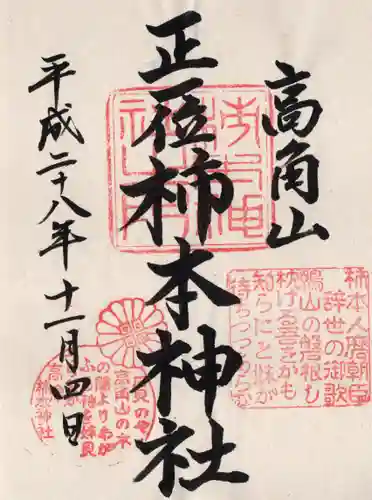 高角山
正一位柿本神社
平成二十八年十一月四日
柿本人麿朝臣
辞世の御歌
鴨山の磐根し
枕ける吾をかも
知らにと妹が
待ちつつあらむ
高角山の木
の際よりわが
ふる袖を妹見
柿本神社